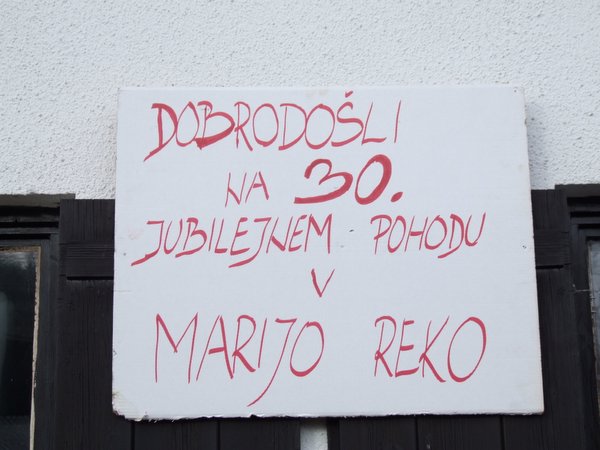 DOBRODOŠLI
NA 30.
JUBILEJNEM POHODU
V
MARIJO REKO